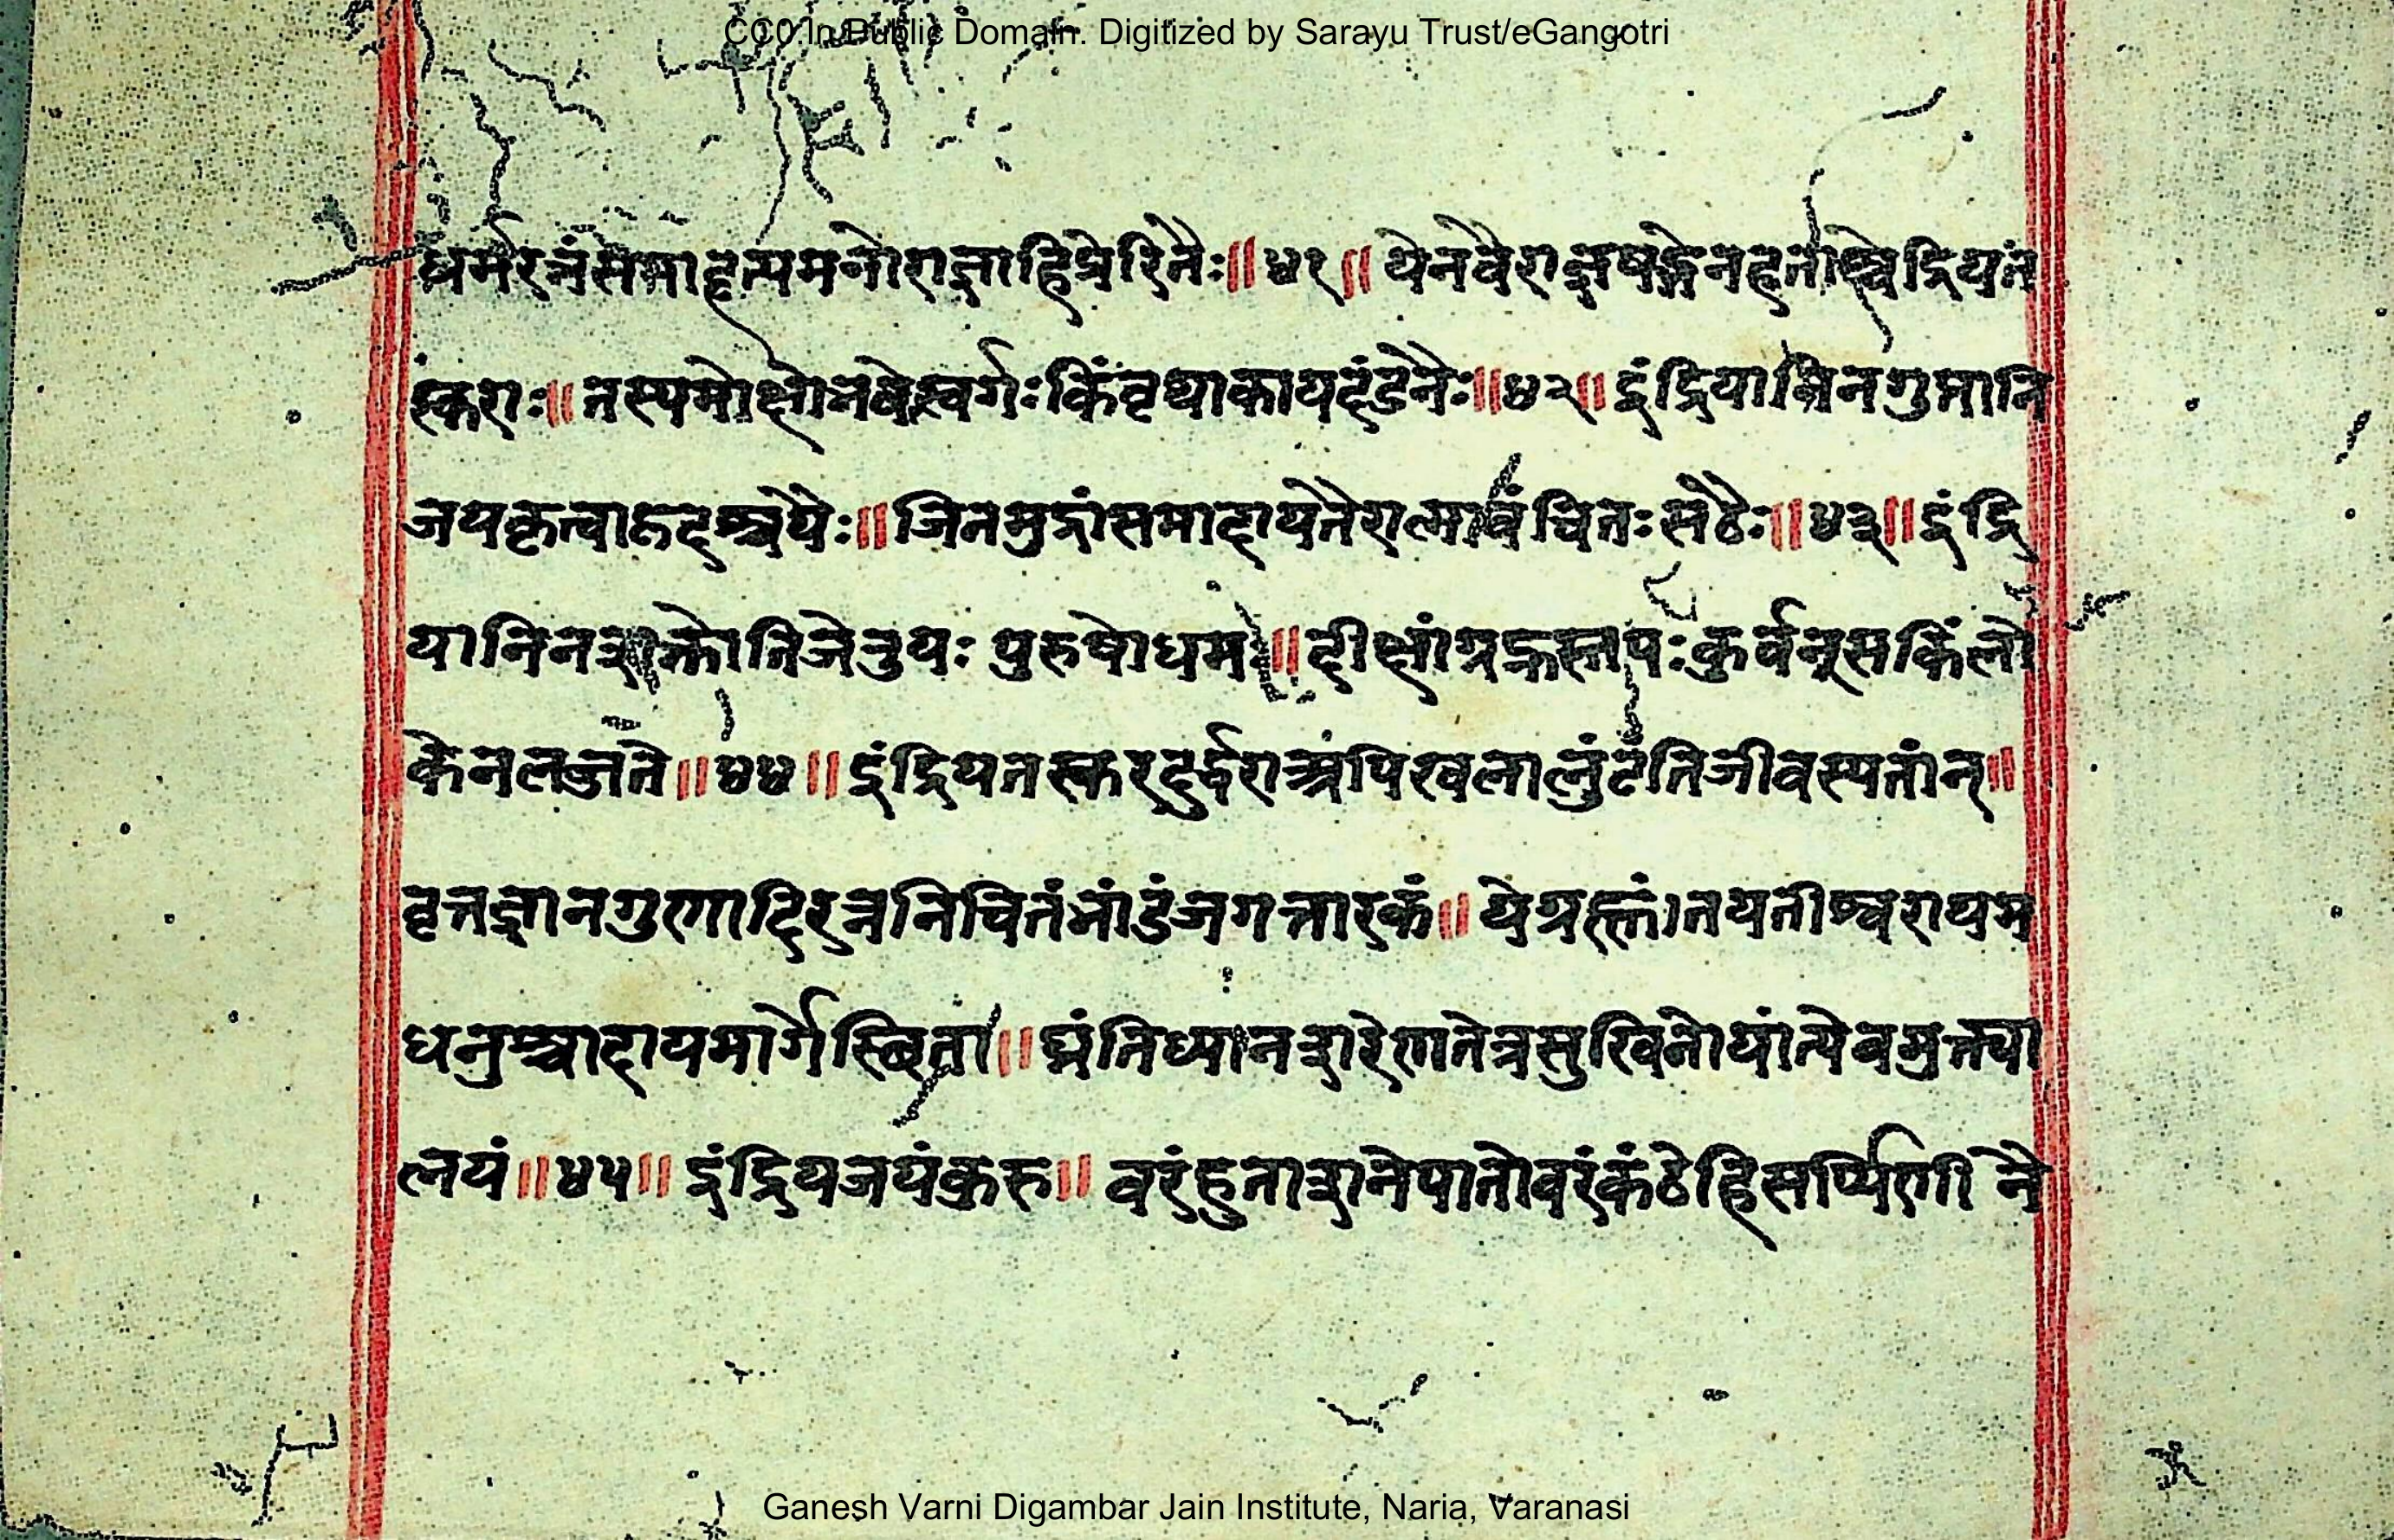 CC0.In Public Domain. Digitized by Sarayu Trust/eGangotri
धर्मरत्नंसमाहृत्यमनोराज्ञाहिप्रेरितैः॥४१॥ येनवैराज्ञषड्गेनहतास्वेंद्रियत
स्कराः॥तस्यमोक्षोनषेस्वर्गःकिंवृथाकायदंडनैः॥४२॥इंद्रियाणिनगुप्तानि
जयकृत्वाहृदश्चयैः॥जिनमुद्रांसमादायतैरात्मावंचितःसठैः॥४३॥इंद्रि
यानिनशक्तोतिजेतुयः पुरुषोधमः॥दीक्षांगृह्यस्तपःकुर्वन्सकिंलो
केनलज्जते॥४४॥इंद्रियतस्करदुर्द्धराअपिखलालुंटंतिजीवस्यतांन्॥
वृत्तज्ञानगुणादिरत्ननिचितंभांडंजगत्तारकं॥येप्रस्तांनयतीश्वरायम
धनुश्चादायमार्गेस्छिता॥घ्नंतिध्यानशरेणतेत्रसुखिनोयांत्येवमुक्त्या
लयं॥४५॥इंद्रियजयंकुरु॥ वरंहुताशनेपातोवरंकंठेहिसर्प्पिणी नै
Ganesh Varni Digambar Jain Institute, Naria, Varanasi